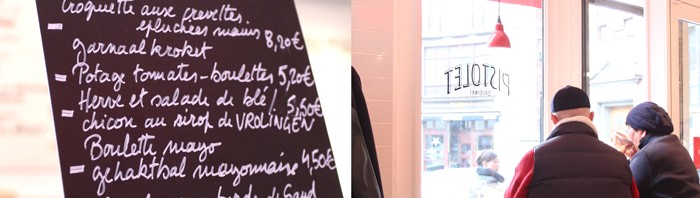 Croquette aux crevettes
épluchées mains 8,20€
garnaal kroket
- Potage tomates-boulettes 5,20€
- Herve et salade de blé/ 5,60€
chicon au sirop de VROLINGEN
Boulette mayo
- gehaktbal mayonnaise 4,50€
PISTOLET